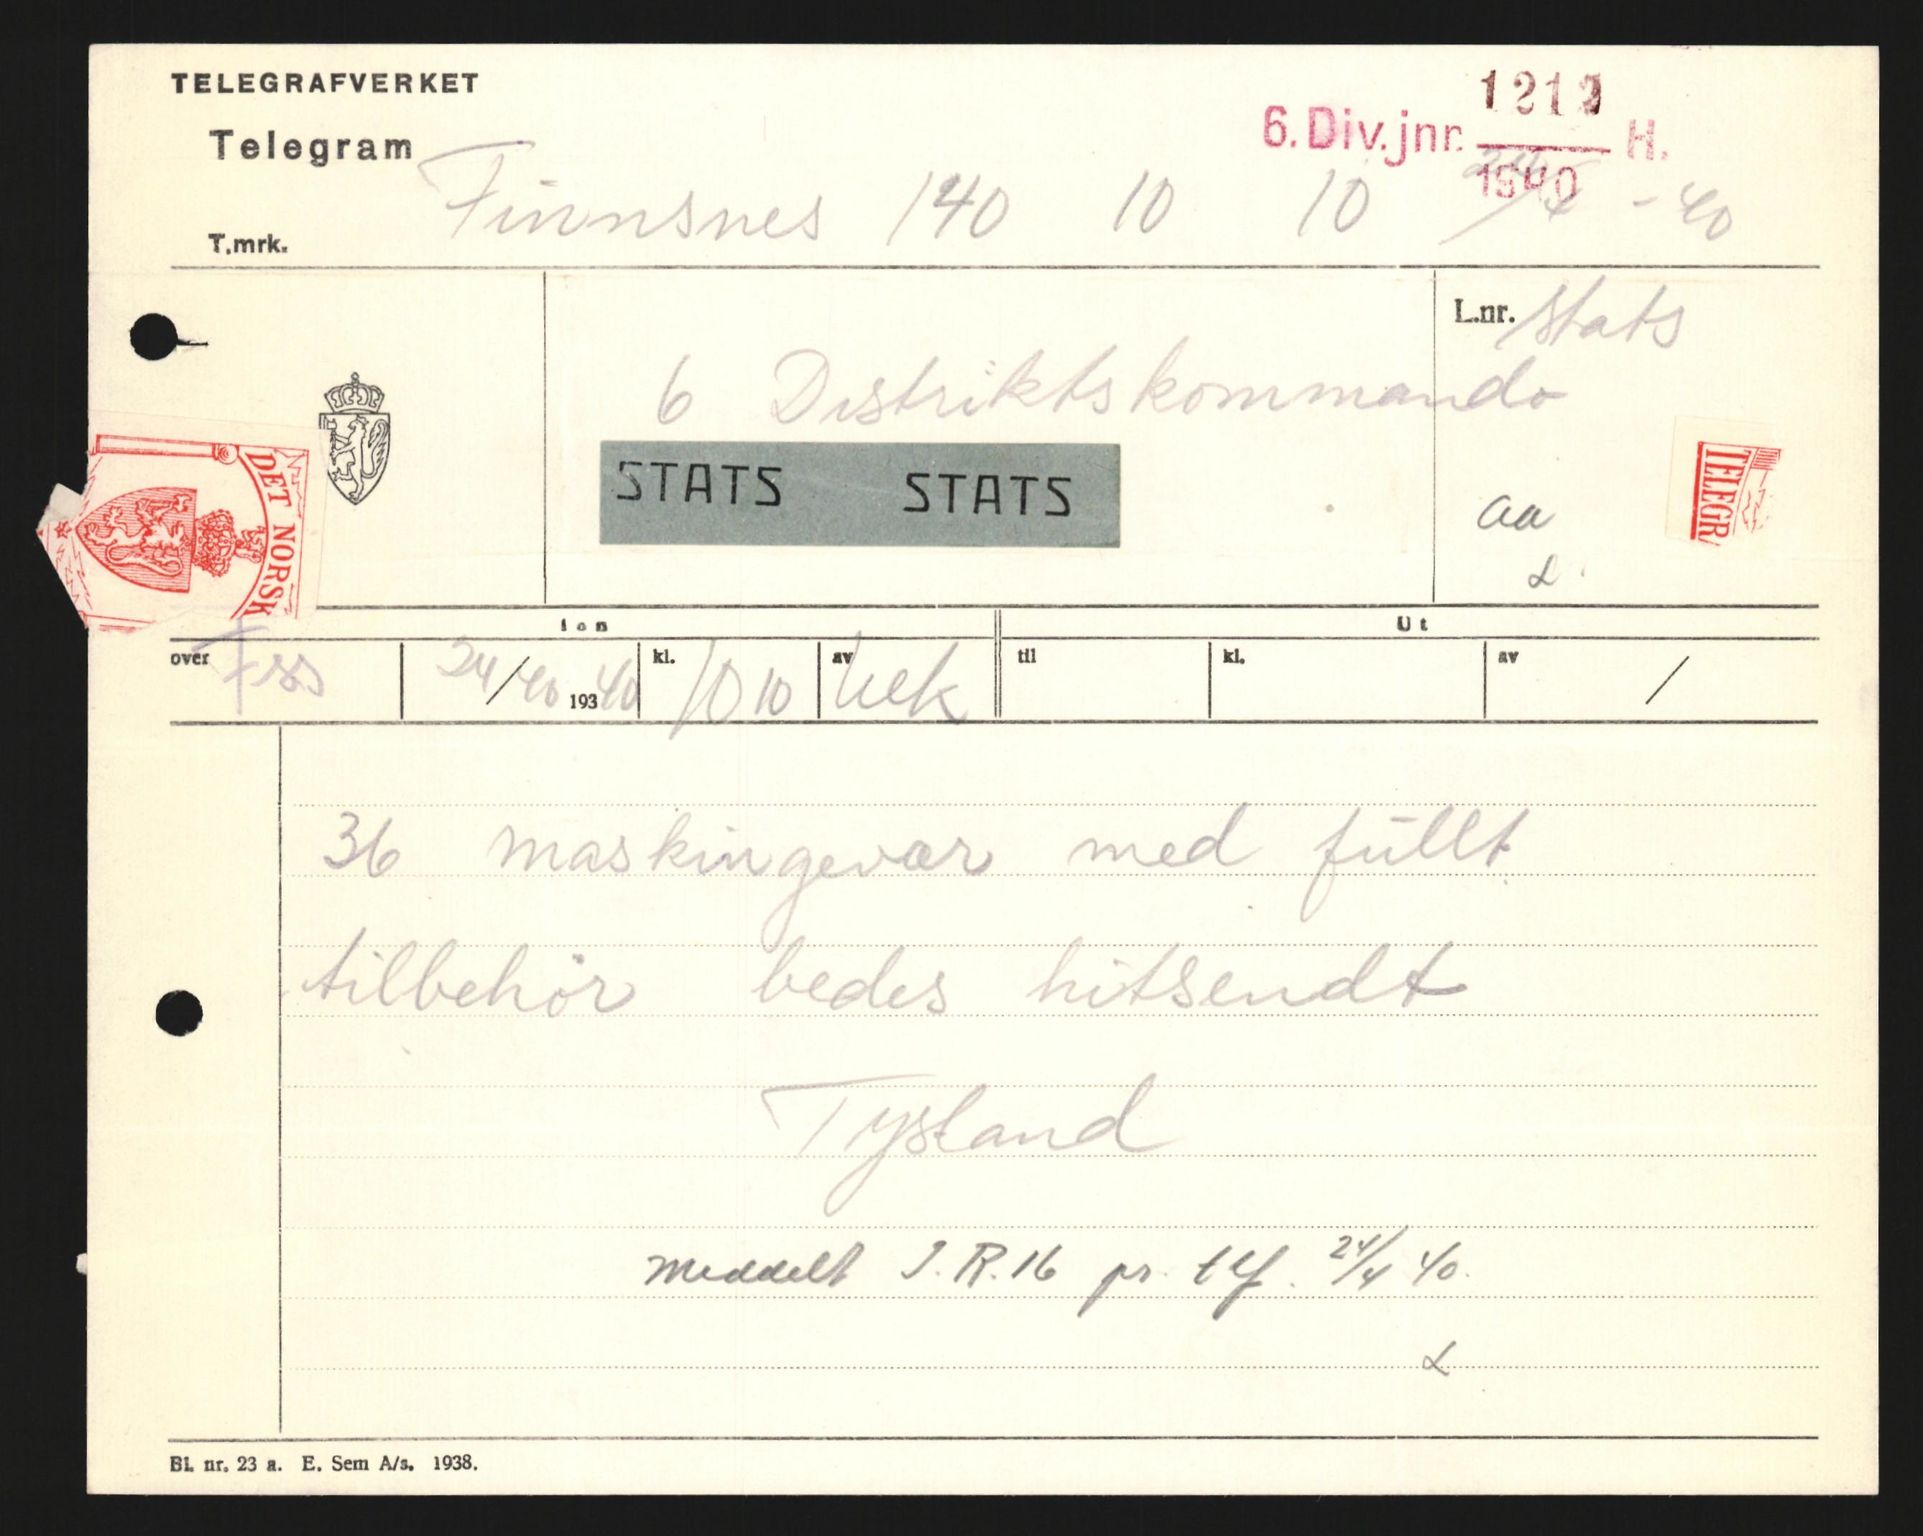 TELEGRAFVERKET
Telegram
6. Div. jnr. 1212 H.
1940
T.mrk.
Finnsnes 140 10 10 24/4 - 40
L.nr. Stats
6 Distriktskommando
STATS STATS
aa
DET NORSK
TELEGRA
Inn
Ut
over Fss 24/40 193 40 kl. 10 10 av
til kl. av /
36 maskingevær med füllt
tilbehör bedes hitsendt
Tysland
Meddelt I.R. 16 pr. tlf. 24/4 40.
Bl. nr. 23 a. E. Sem A/s. 1938.